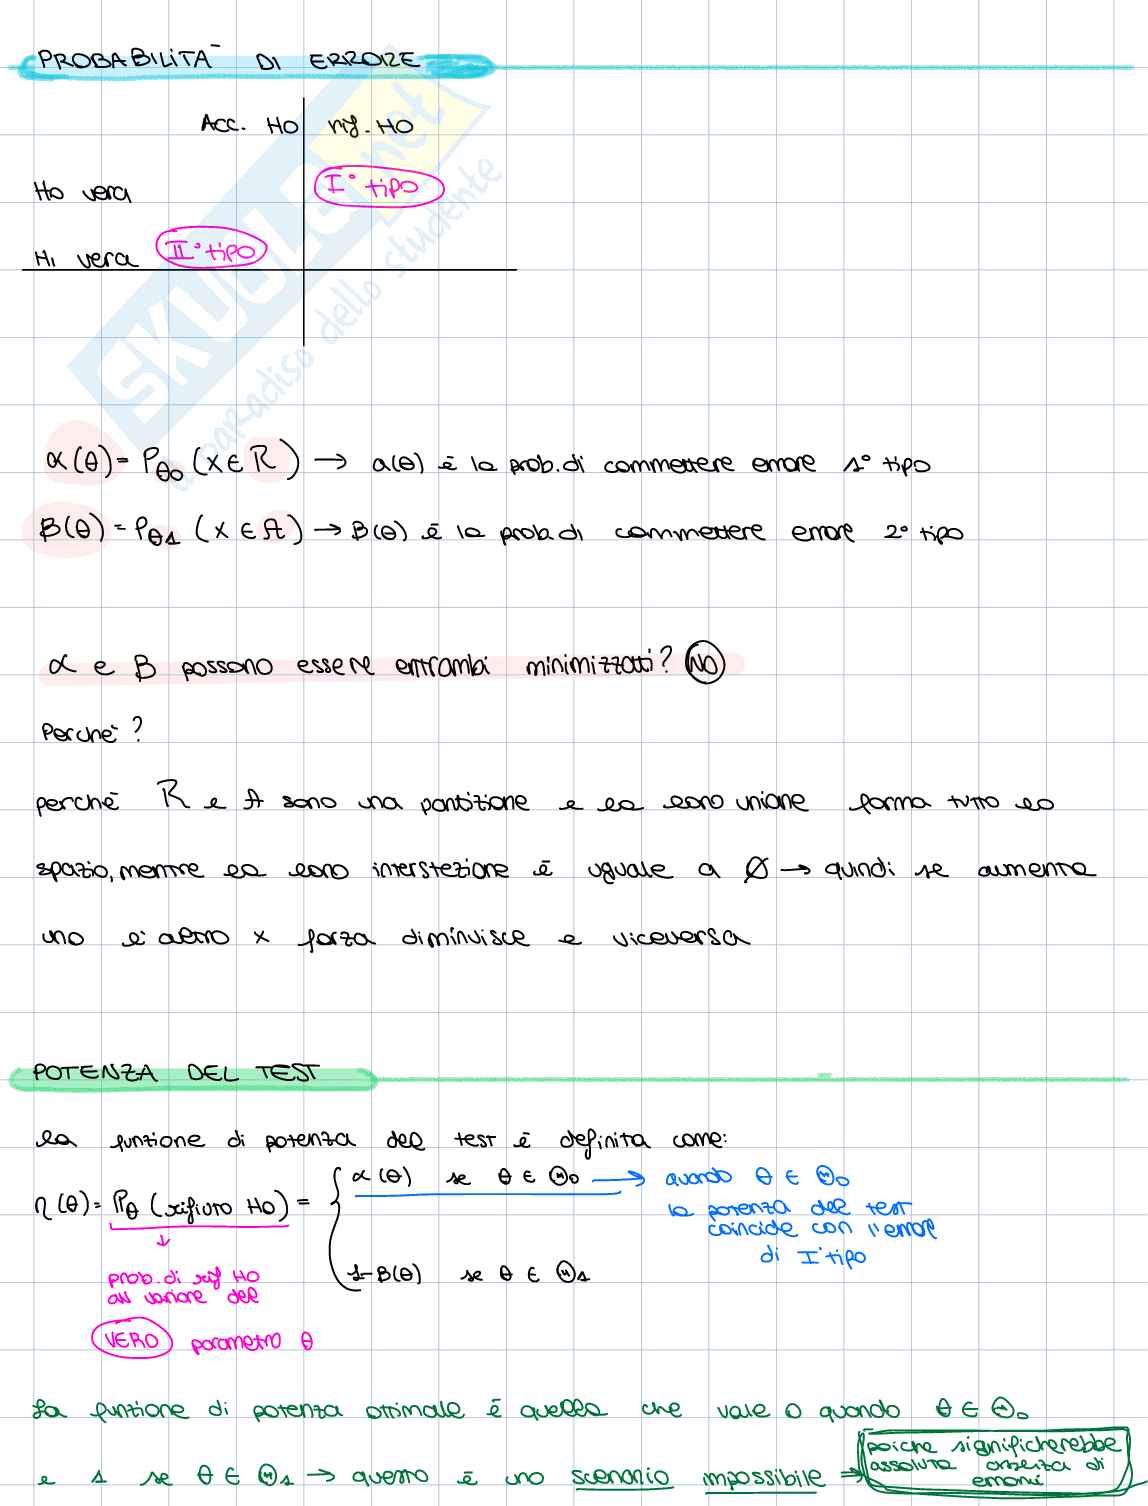 PROBABILITÀ DI ERRORE
Acc. H0 rif. H0
H0 vera I° tipo
H1 vera II° tipo
α(θ) = Pθ0 (X ∈ R) → α(θ) è la prob. di commettere errore 1° tipo
B(θ) = Pθ1 (X ∈ A) → B(θ) è la prob. di commettere errore 2° tipo
α e B possono essere entrambi minimizzati? NO
Perché?
perché R e A sono una partizione e la loro unione forma tutto lo
spazio, mentre la loro interstezione è uguale a Ø → quindi se aumenta
uno l'altro x forza diminuisce e viceversa
POTENZA DEL TEST
la funzione di potenza del test è definita come:
η(θ) = Pθ (rifiuto H0) = { α(θ) se θ ∈ Θ0 → quando θ ∈ Θ0
la potenza del test
coincide con l'error
di I° tipo
1-B(θ) se θ ∈ Θ1
↓
prob. di rif H0
al variare del
VERO parametro θ
La funzione di potenza ottimale è quella che vale 0 quando θ ∈ Θ0
e 1 se θ ∈ Θ1 → questo è uno scenario impossibile → poiche significherebbe
assoluta assenza di
errori
SKUOLA.net
il paradiso dello studente